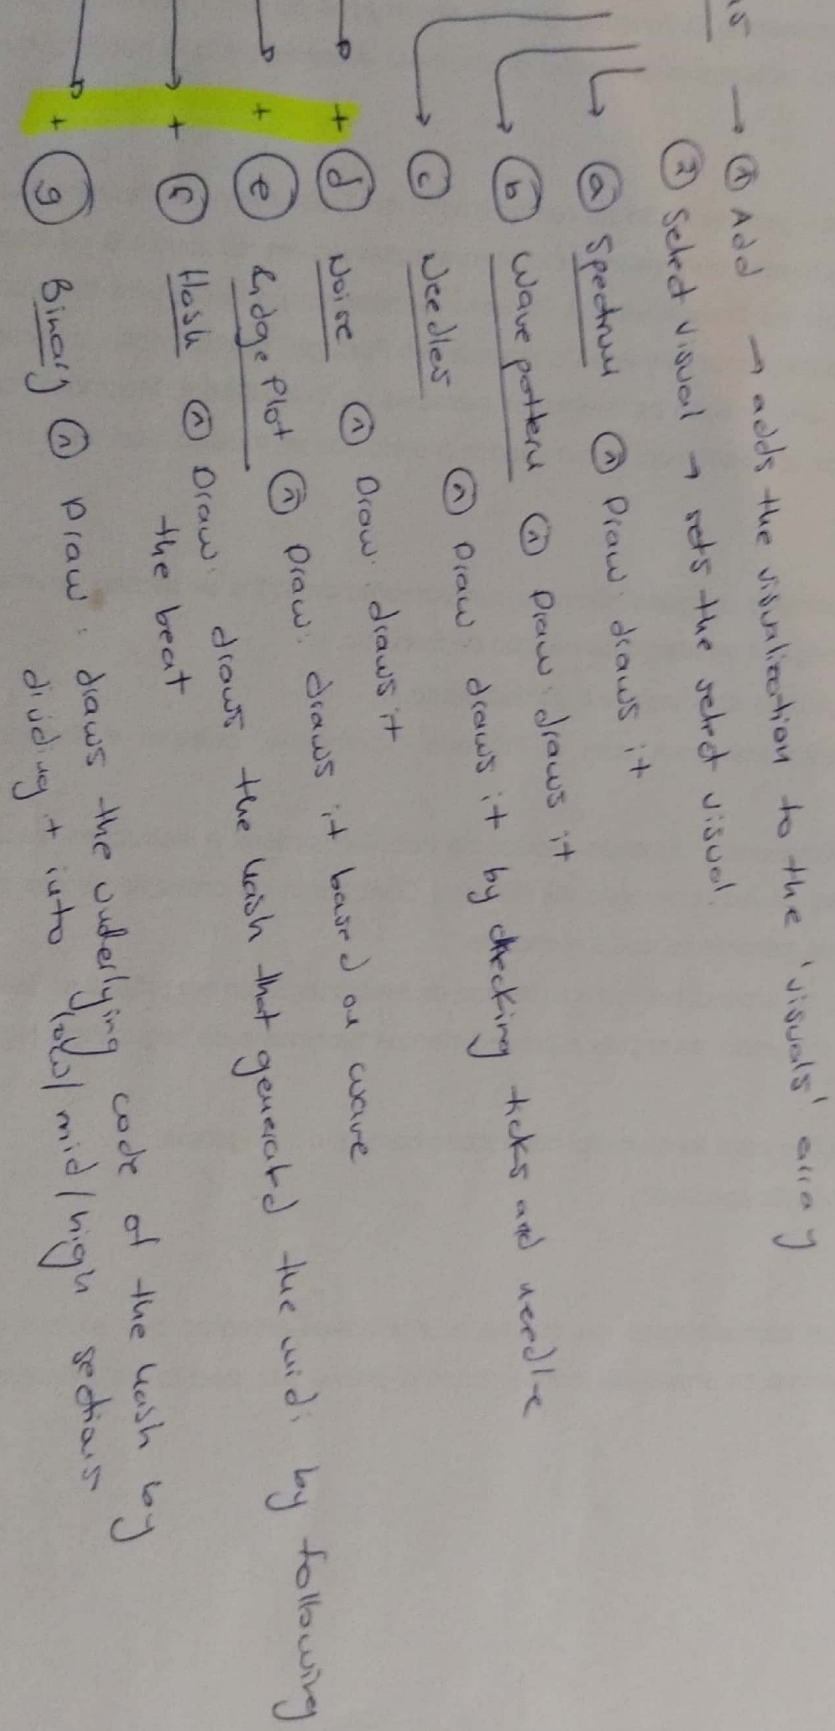 → ① Add → adds the visualization to the 'visuals' array
② Select visual → sets the select visual.
→ ⓐ Spectrum ① Draw: draws it
→ ⓑ Wave pattern ① Draw draws it
→ ⓒ Needles ① Draw draws it by checking ticks and needle
+ ⓓ Noise ① Draw: draws it
+ ⓔ Ridge Plot ① Draw: draws it based on wave
+ ⓕ Hash ① Draw: draws the hash that generated the midi by following
the beat
+ ⓖ Binary ① Draw: draws the underlying code of the hash by
dividing + into low/mid/high sections